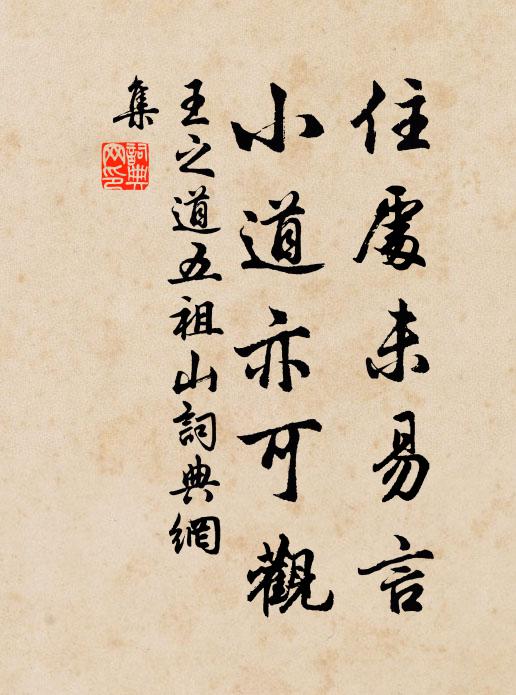 住處未易言
小道亦可觀
王之道五祖山詞典網
集
詞典
網印